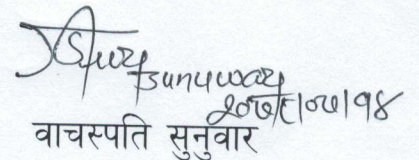 Sunuwar
२०७९।०७।१४
वाचस्पति सुनुवार